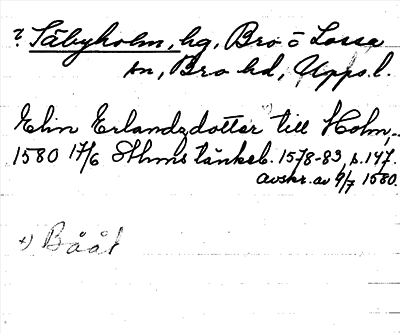 ? Säbyholm, hg, Bro o Lossa
sn, Bro hd, Upps.l.
Elin Erlandzdotter till Holm,
1580 17/6 Sthms tänkeb. 1578-83, s. 147.
avskr. av 9/7 1580.
x) Bååt